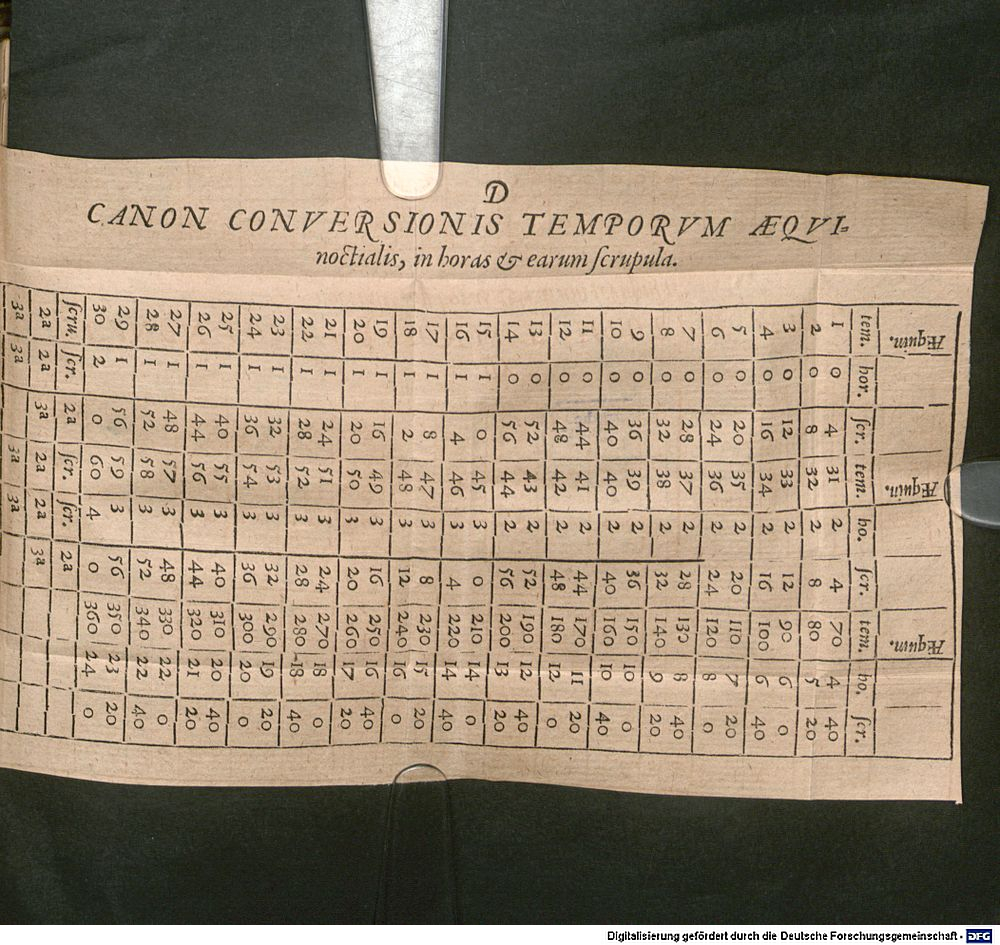 D
CANON CONVERSIONIS TEMPORVM ÆQVI-
noctialis, in horas & earum ſcrupula.
Æquin. Æquin. Æquin.
tem. hor. ſcr. tem. ho. ſcr. tem. ho. ſcr.
1 0 4 31 2 4 70 4 40
2 0 8 32 2 8 80 5 20
3 0 12 33 2 12 90 6 0
4 0 16 34 2 16 100 6 40
5 0 20 35 2 20 110 7 20
6 0 24 36 2 24 120 8 0
7 0 28 37 2 28 130 8 40
8 0 32 38 2 32 140 9 20
9 0 36 39 2 36 150 10 0
10 0 40 40 2 40 160 10 40
11 0 44 41 2 44 170 11 20
12 0 48 42 2 48 180 12 0
13 0 52 43 2 52 190 12 40
14 0 56 44 2 56 200 13 20
15 1 0 45 3 0 210 14 0
16 1 4 46 3 4 220 14 40
17 1 8 47 3 8 230 15 20
18 1 2 48 3 12 240 16 0
19 1 16 49 3 16 250 16 40
20 1 20 50 3 20 260 17 20
21 1 24 51 3 24 270 18 0
22 1 28 52 3 28 280 18 40
23 1 32 53 3 32 290 19 20
24 1 36 54 3 36 300 20 0
25 1 40 55 3 40 310 20 40
26 1 44 56 3 44 320 21 20
27 1 48 57 3 48 330 22 0
28 1 52 58 3 52 340 22 40
29 1 56 59 3 56 350 23 20
30 2 0 60 4 0 360 24 0
ſcru. ſcr. 2a ſcr. ſcr. 2a
2a 2a 3a 2a 2a 3a
3a 3a 3a 3a
Digitalisierung gefördert durch die Deutsche Forschungsgemeinschaft - DFG